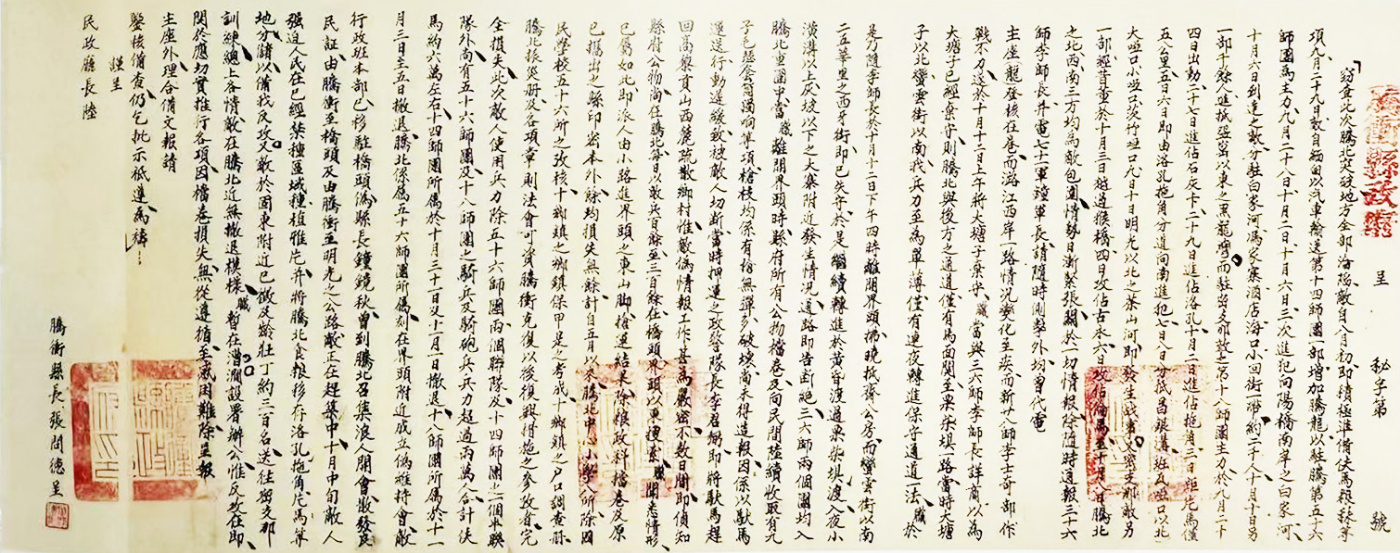 騰衝縣政府 呈 秘字第 號
竊查此次騰北突敵地方全部淪陷敵自八月初即積極準備伕馬糧秣等
項九月二十九日敵自緬甸以汽車輸送第十四師團一部增加騰龍以駐騰第五十六
師團為主力九月二十八日十月二日十月六日三次進犯向陽橋南岸之白家河
十月六日到達之敵分駐白家河馮家寨酒店海口小回街一帶約二千人十月十日另
一部千餘人進抵以東之黑龍灣而駐密支那敵之第十八師團主力於九月二十
四日出動二十七日進佔石灰卡二十九日進佔洛孔十月二日進佔拖角三日距片馬僅
五公里五日六日即由洛孔拖角分道向南進犯七日八日分抵昌銀溝姓反啞口以北
大啞口小啞口茨竹啞口九日十日明光以北之茶山河即發生戰事又密支那敵另
一部經昔董於十月三日越過猴橋四日攻佔古永六日攻佔偏馬至十月 日騰北
之北西南三方均為敵包圍情勢日漸緊張關於一切情報除隨時通報三十六
師李師長并電七十一軍鐘軍長請隨時周墊外均曾代電
主座龍登核在卷而潞江西岸一路情況變化至失而新廿八師李士奇部作
戰不力遂於十月十二日上午將大塘子棄守職當與三六師李師長詳商以為
大塘子已經棄守則騰北與後方之通道僅有馬面關至栗柴垻一路當時大塘
子以北蠻雲街以南我兵力至為單薄僅有連夜轉進保守通道一法職於
是乃隨李師長於十月十二日下午四時離開界頭拂曉抵齋公房而蠻雲街以南
二五華里之西牙街即已失守於是繼續轉進於黃昏渡過栗柴垻渡入夜小
橫溝以上灰坡以下之大寨附近發生情況道路即告斷絕三六師兩個團均入
騰北重圍中當職離開界頭時縣府所有公物檔卷及向民間陸續收取有九
子毛瑟套筒獨响等項槍枝均係有槍無彈多破壞尚未得造報因係以馱馬
運送行動遲緩致被敵人切斷當時押運之政警隊長李君弼即將馱馬趕
回高黎貢山西麓疏散鄉村惟敵偽情報工作甚為嚴密不數日間即偵知
縣府公物尚在騰北每日以敵兵百餘至三百餘在橋頭界頭以東搜查職聞悉情形
已屬如此即派人由小路進界頭之東山脚搶運結果除糧政科檔卷及原
已攜出之縣印密本外餘均損失無餘計自五月以來騰北中小學八所除國
民學校五十六所之攷核十鄉鎮之鄉鎮保甲長之考成十鄉鎮之戶口調查冊
騰北賑災冊及各項章則法會計賓騰衝克復以後復興措施之參攷者完
全損失此次敵人使用兵力除五十六師團兩個聯隊及十四師團之一個半聯
隊外尚有五十六師團及十八師團之騎兵及騎砲兵兵力超過兩萬人合計伕
馬約六萬左右十四師團所屬於十月三十一日又十一月一日撤退十八師團所屬於十一
月三日至五日撤退騰北係屬五十六師團所屬刻在界頭附近成立偽維持會敵
行政班本部已移駐橋頭偽縣長鐘鏡秋曾到騰北召集浪人開會散發良
民証由騰衝至橋頭及由騰衝至明光之公路敵正在趕築中十月中旬敵人
強迫人民在已經禁種區域種植雅片并將騰北食糧移存洛孔拖角片馬等
地分儲以備我反攻又敵於固東附近已徵及齡壯丁約二百名送往密支那
訓練總上各情敵在騰北近無撤退模樣職暫在漕澗設署辦公惟反攻在即
關於應切實推行各項因檔卷損失無從遵循至感困難除呈報
主座外理合備文報請
鑒核備查仍乞批示祗遵為禱
謹呈
民政廳長陸
騰衝縣長張問德呈